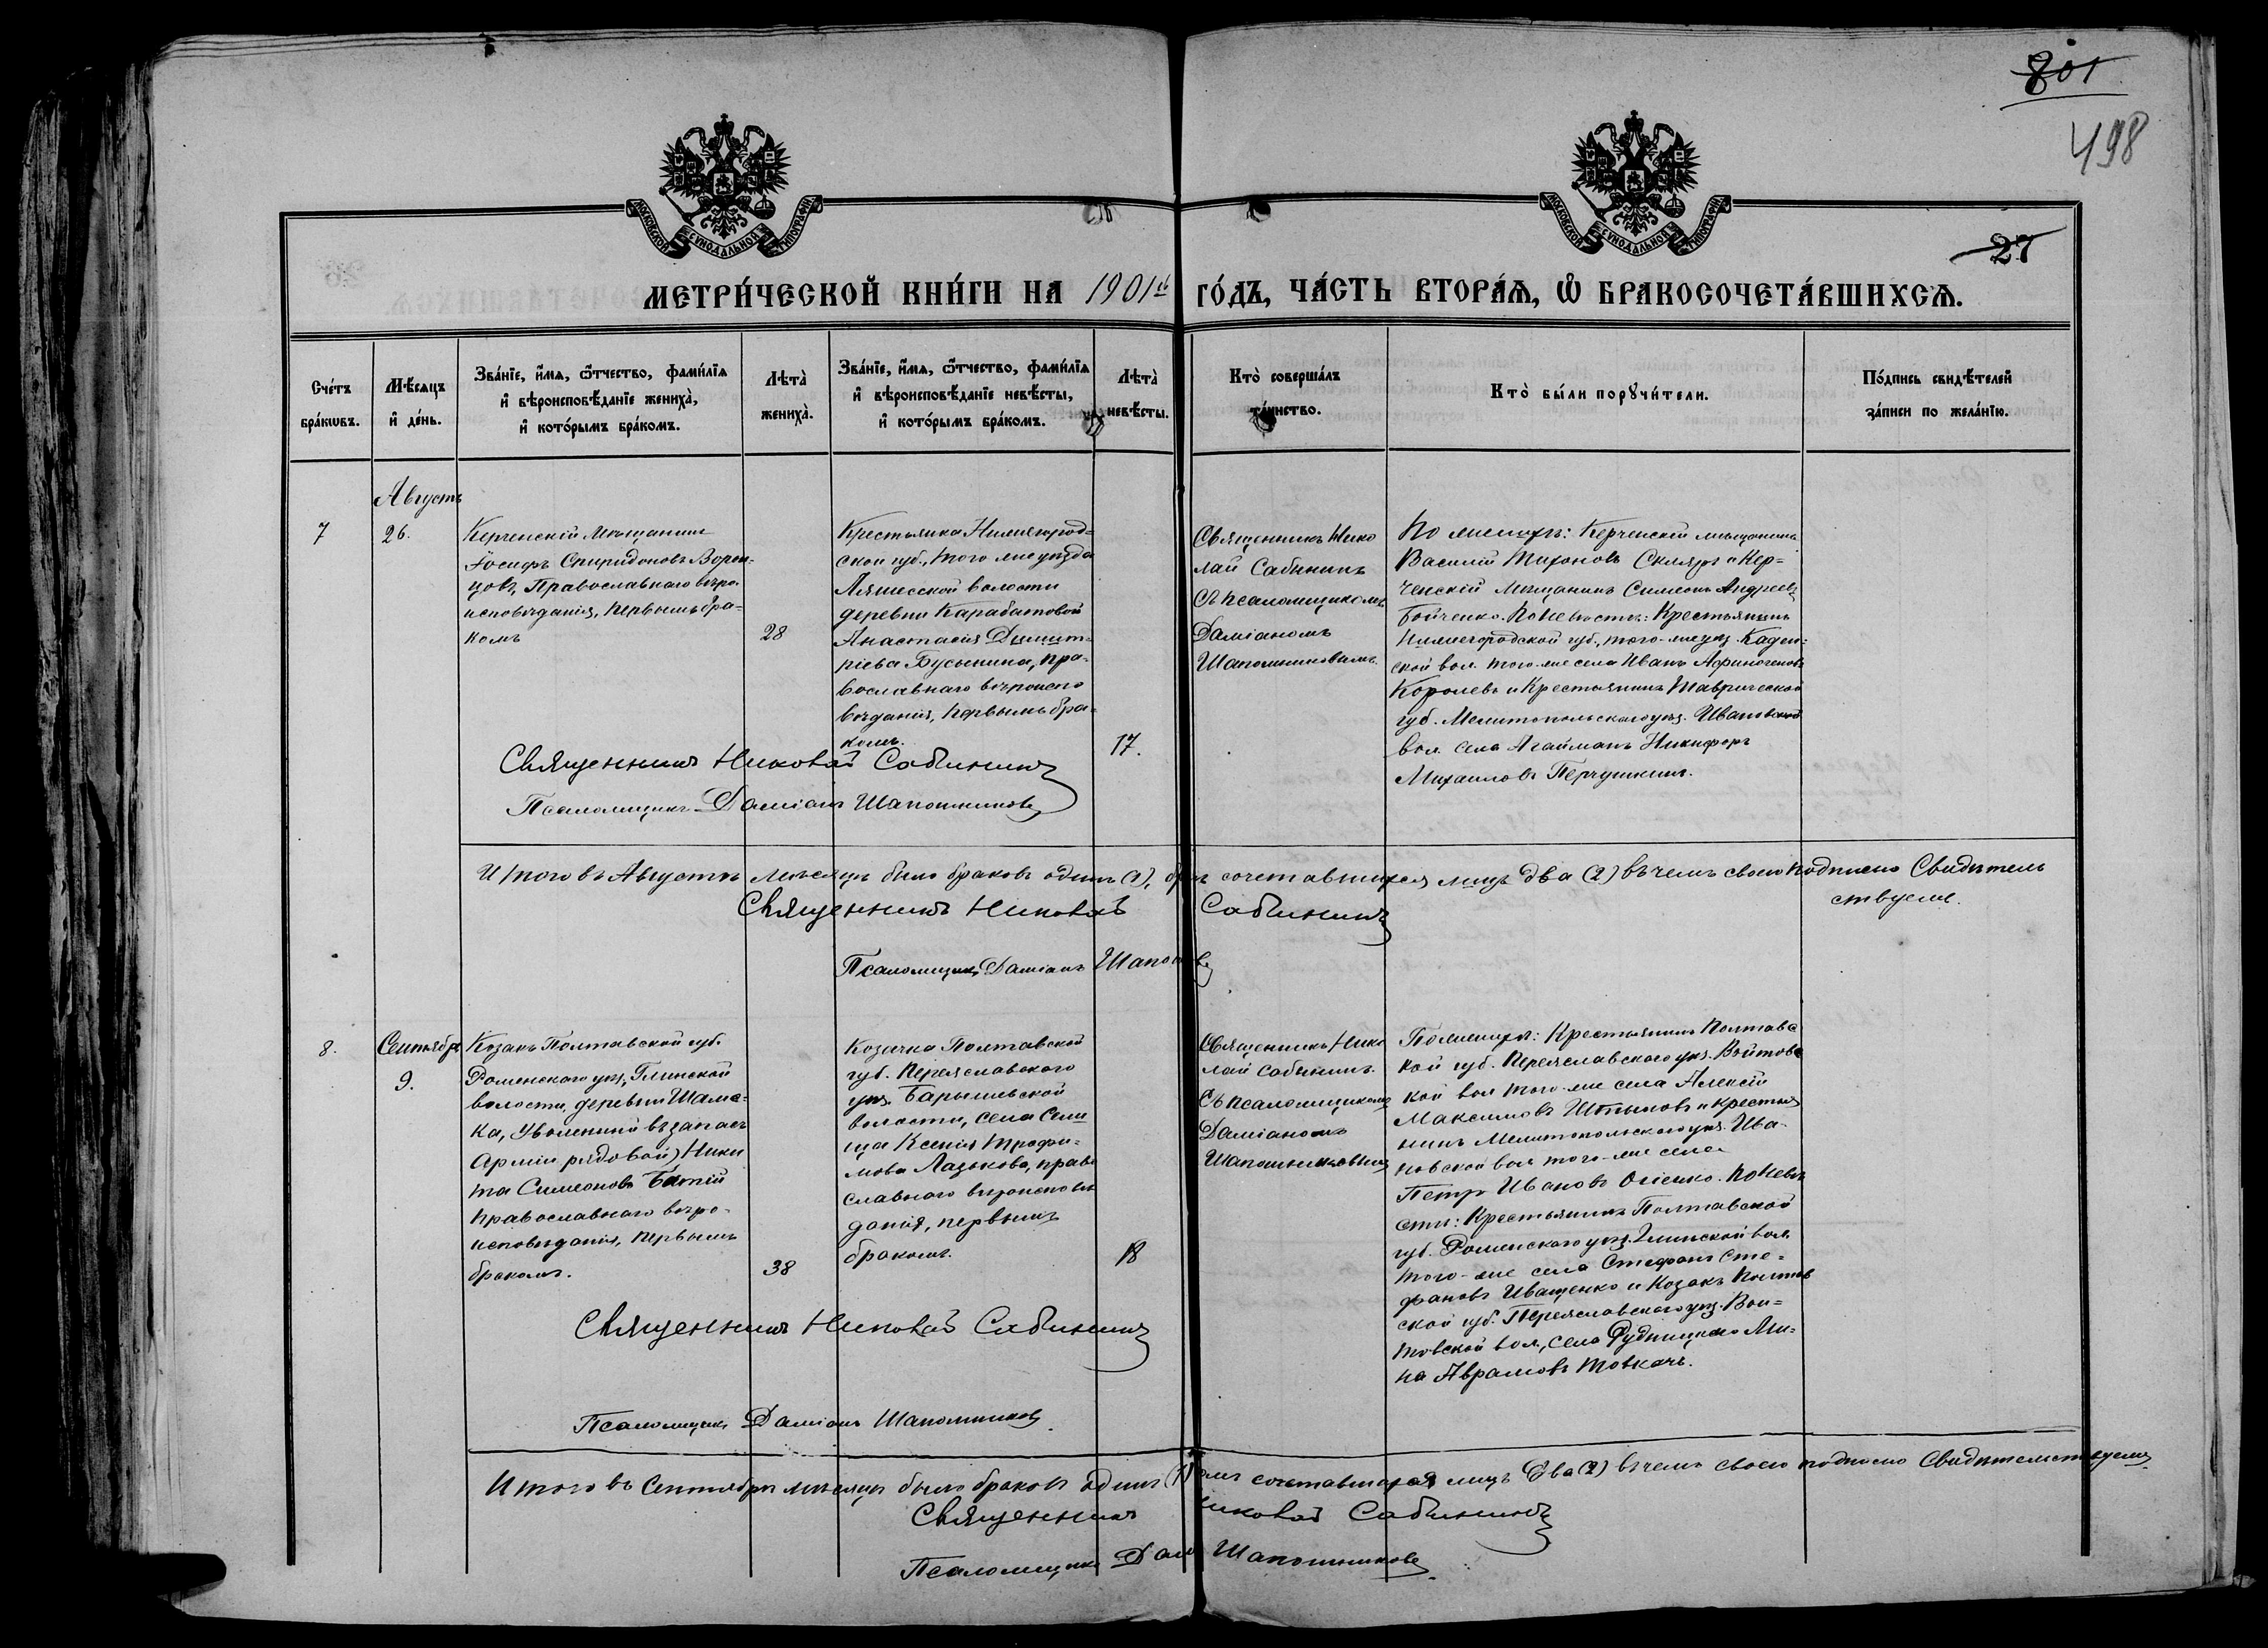 801
498
МОСКОВСКОЙ СѴНОДАЛЬНОЙ ТИПОГРАФІИ
МОСКОВСКОЙ СѴНОДАЛЬНОЙ ТИПОГРАФІИ
27
МЕТРИ́ЧЕСКОЙ КНИ́ГИ НА 1901й ГО́ДЪ, ЧА́СТЬ ВТОРА́Ѧ, Ѽ БРАКОСОЧЕТА́ВШИХСѦ.
Сче́тъ
бра́кѡвъ.
Мѣ́сѧцъ
и҆ де́нь.
Зва́нїе, и҆́мѧ, ѻ҆́тчество, фами́лїѧ
и҆ вѣроисповѣ́данїе жениха̀,
и҆ кото́рымъ бра́комъ.
Лѣта̀
жениха̀.
Зва́нїе, и҆́мѧ, ѻ҆́тчество, фами́лїѧ
и҆ вѣроисповѣ́данїе невѣ́сты,
и҆ кото́рымъ бра́комъ.
Лѣта̀
невѣ́сты.
Кто̀ соверша́лъ
та́инство.
Кто̀ бы́ли порꙋчи́тели.
По́дпись свидѣ́телей
за́писи по жела́нїю.
Августъ
7
26.
Керченскій Мѣщанинъ
Іосифъ Спиридоновъ Ворон-
цовъ, Православнаго вѣро-
исповѣданія, первымъ бра-
комъ
28
Крестьянка Нижегород-
ской губ., того же уѣзда
волости
деревни Карабатовой
Анастасія Димит-
ріева Бусыгина, пра-
вославнаго вѣроиспо
вѣданія, первымъ бра-
комъ.
17.
Священникъ Нико
лай Сабининъ
съ псаломщикомъ
Даміаномъ
Шапошниковымъ.
По женихѣ: Керченскій мѣщанинъ
Василій Тихоновъ Скляръ и Кер-
ченскій Мѣщанинъ Симеонъ Андреевъ
Бойченко. По невѣстѣ: Крестьянинъ
Нижегородской губ., того-же уѣз.
ской вол. того-же села Иванъ Афиногеновъ
Королевъ и Крестьянинъ Таврической
губ. Мелитопольскаго уѣз. Ивановской
вол. села Агайманъ Никифоръ
Михаиловъ Перчушкинъ.
Священникъ Николай Сабининъ
Псаломщикъ Даміанъ Шапошниковъ
Итого въ Августѣ мѣсяцѣ было браковъ одинъ (1), сочетавшихся лицъ два (2) въ чемъ своею подписью Свидѣтель
ствуемъ.
Священникъ Николай Сабининъ
Псаломщикъ Даміанъ
8.
Сентябрь
9.
Козакъ Полтавской губ.
Роменскаго уѣз., Глинской
волости, деревни
ка, уволенный въ запасъ
Арміи рядовой) Ники
та Симеоновъ Батій
православнаго вѣро-
исповѣданія, первымъ
бракомъ.
38
Козачка Полтавской
губ. Переяславского
уѣз. Барышевской
волости, села Сели
ща Ксенія Трофи-
мова Лазькова, право
славнаго вѣроисповѣ
данія, первымъ
бракомъ.
18
Священникъ Нико
лай Сабининъ.
Съ псаломщикомъ
Даміаномъ
Шапошниковымъ
По женихѣ: Крестьянинъ Полтавс
кой губ. Переяславскаго уѣз. Войтовс
кой вол того-же села Алексій
Максимовъ и крестья
нинъ Мелитопольскаго уѣз. Ива-
новской вол того-же села
Петръ Ивановъ Огіенко. По невѣ
стѣ: Крестьянинъ Полтавской
губ. Роменскаго уѣз. Глинской вол.
того-же села Стефанъ Сте-
фановъ Иващенко и Козакъ Полтав
ской губ. Переяславскаго уѣз. Вой-
товской вол., села Ми-
на Аврамовъ Товкачъ.
Священникъ Николай Сабининъ
Псаломщикъ Даміанъ Шапошниковъ
Итого въ Сентябрѣ мѣсяцѣ было браковъ одинъ (1) сочетавшихся лицъ два (2) въ чемъ своею подписью Свидѣтельствуемъ.
Священникъ Николай Сабининъ
Псаломщикъ Дам Шапошниковъ